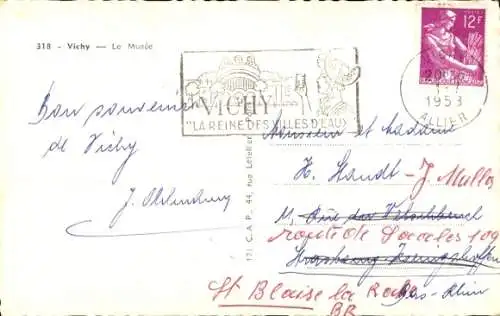 318 - Vichy — Le Musée
12F
POSTES
1953
ALLIER
VICHY
"LA REINE DES VILLES D'EAUX"
Bon souvenir
de Vichy
Monsieur et Madame
H. Standt - J. Muller
11, Rue du
route de 109
Strasbourg
St Blaise la Roche Bas-Rhin
BR
C.A.P., 44, rue